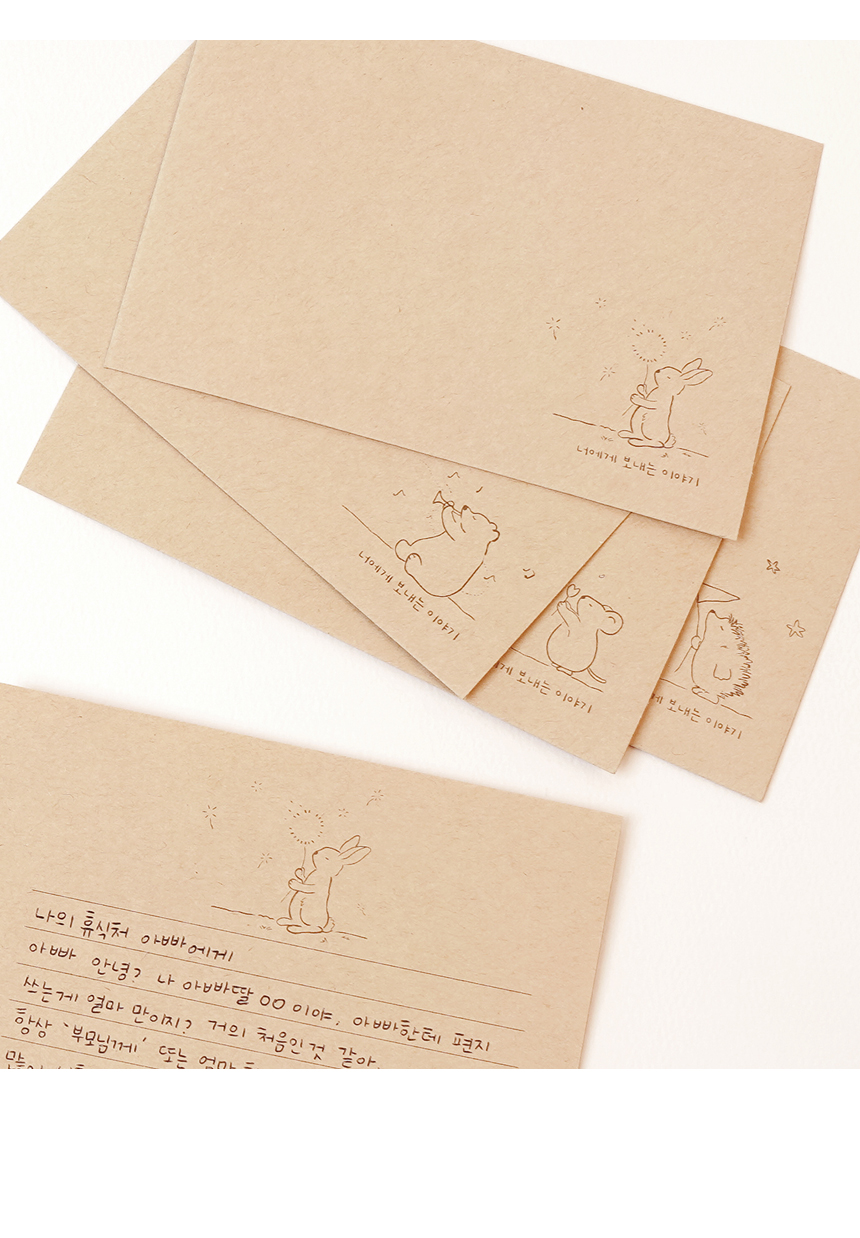 너에게 보내는 이야기
너에게 보내는 이야기
게 보내는 이야기
게 보내는 이야기
나의 휴식처 아빠에게
아빠 안녕? 나 아빠딸 OO이야. 아빠한테 편지
쓰는게 얼마 만이지? 거의 처음인것 같아.
항상 '부모님께' 또는 엄마